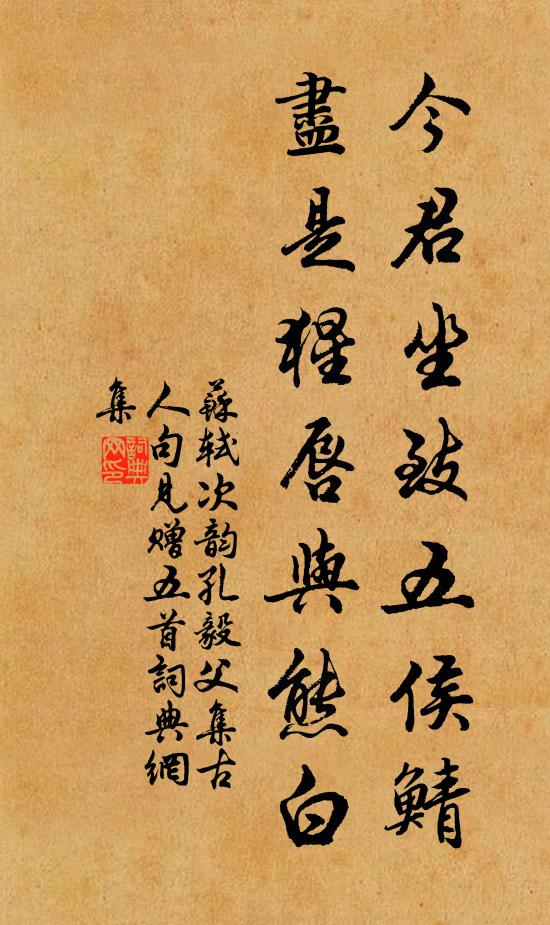 今君坐致五侯鯖
盡是猩唇與熊白
蘇軾次韵孔毅父集古
人句見贈五首詞典網
集